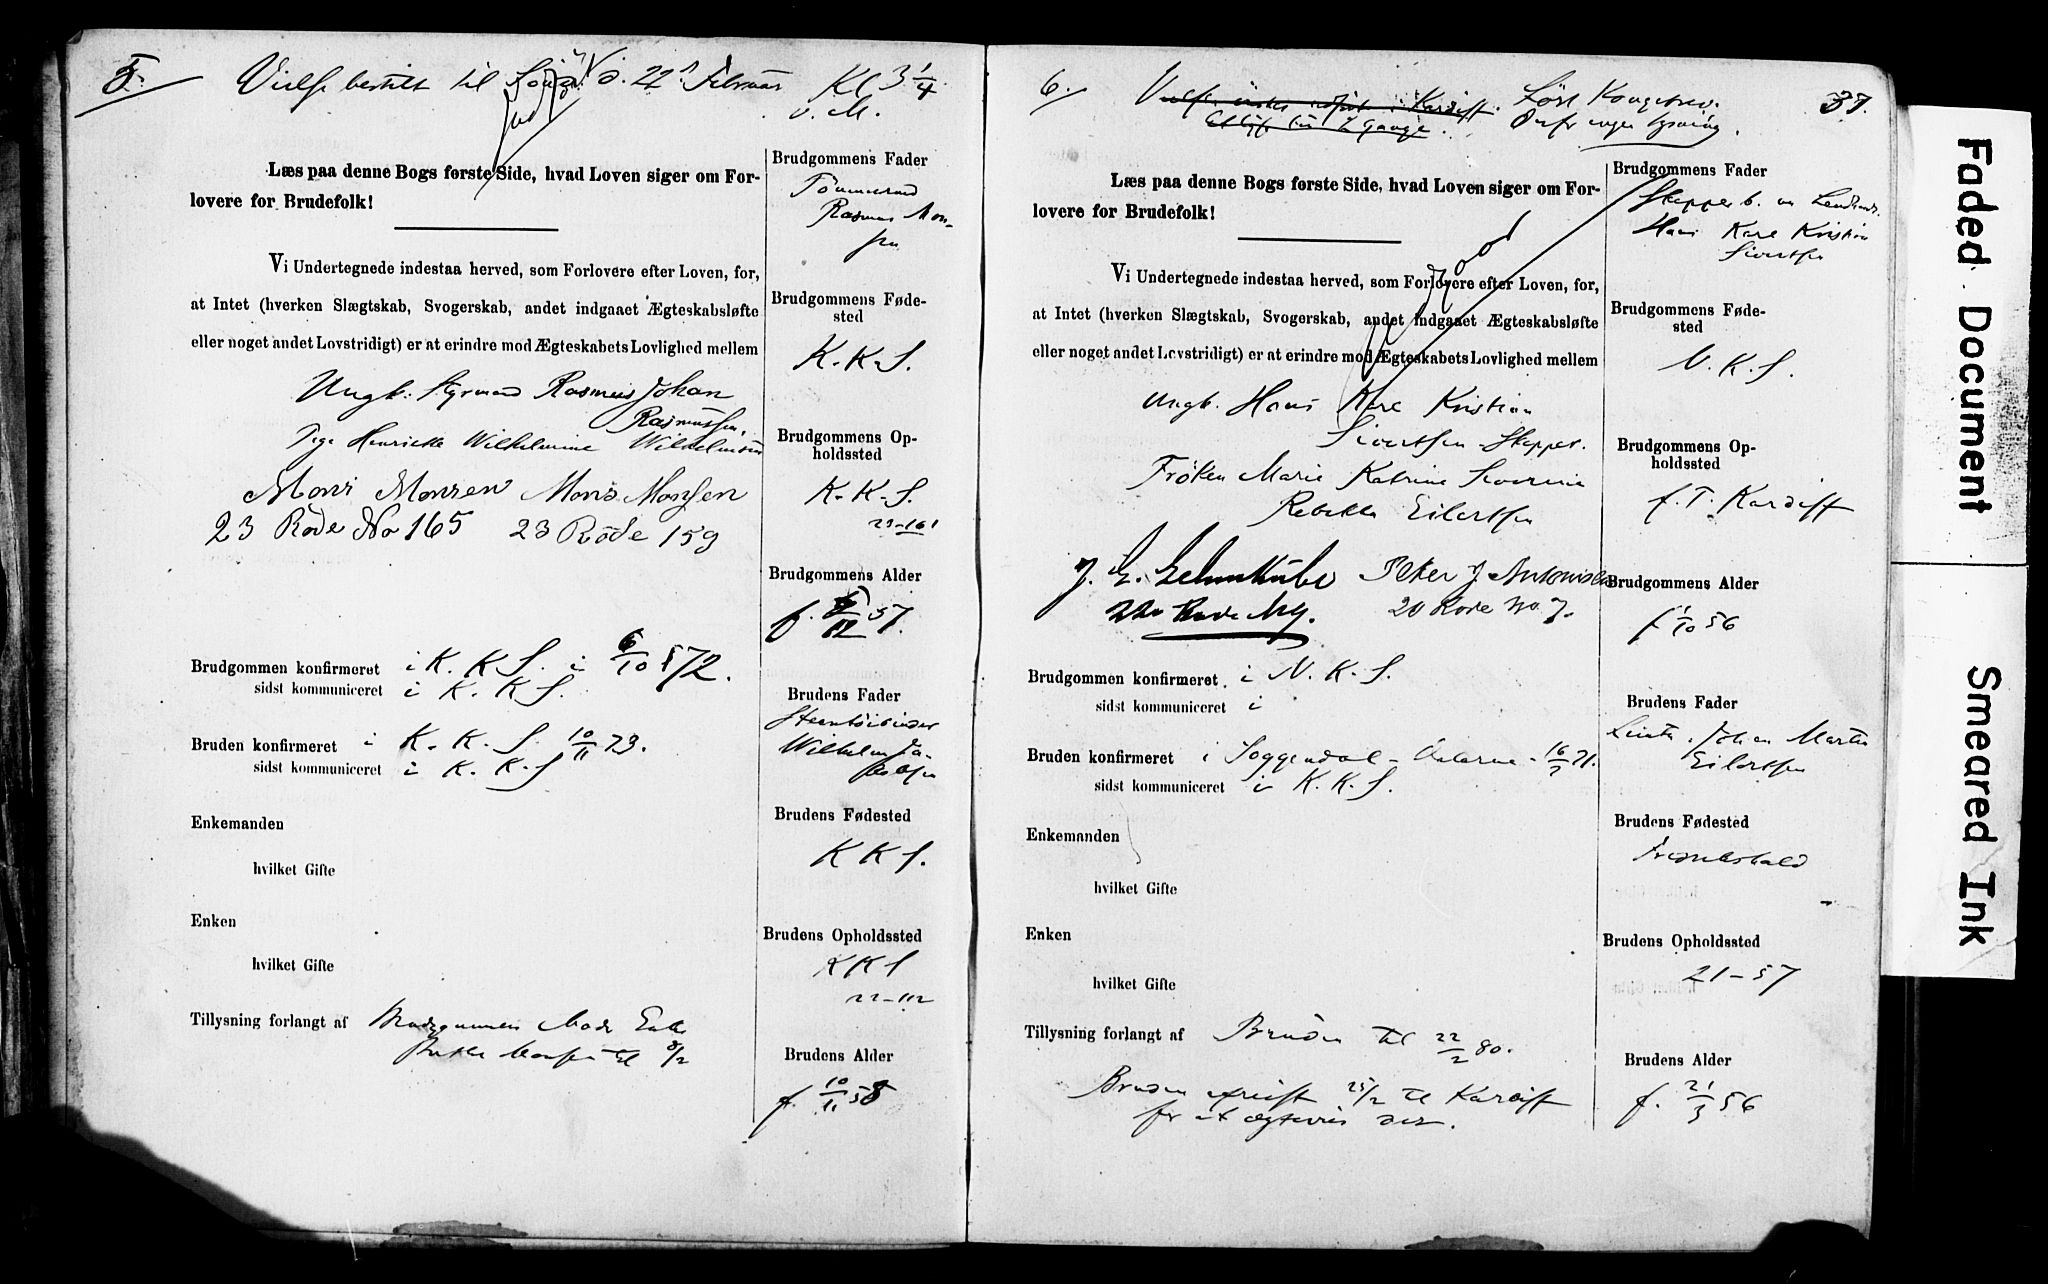 5.
Vielse bestilt til d. 22 Februar Kl 3 1/4
Læs paa denne Bogs første Side, hvad Loven siger om For-
lovere for Brudefolk!
Vi Undertegnede indestaa herved, som Forlovere efter Loven, for,
at Intet (hverken Slægtskab, Svogerskab, andet indgaaet Ægteskabsløfte
eller noget andet Lovstridigt) er at erindre mod Ægteskabets Lovlighed mellem
Ungk. Styrmand Rasmus Johan
Rasmussen.
Pige Henrikke Wilhelmine Wilhelmsen
Mons Monsen Mons Monsen
23 Rode No 165 23 Rode 159
Brudgommen konfirmeret i K. K. S. i 6/10 72.
sidst kommuniceret i K. K. S.
Bruden konfirmeret i K. K. S. 10/11 73.
sidst kommuniceret i K. K. S
Enkemanden
hvilket Gifte
Enken
hvilket Gifte
Tillysning forlangt af Brudgommens Moder Enke
til 8/2
Brudgommens Fader
Tømmermand
Rasmus Mon-
sen
Brudgommens Føde-
sted
K. K. S.
Brudgommens Op-
holdssted
K. K. S.
23-161
Brudgommens Alder
f. 12 57.
Brudens Fader
Wilhelm Ja-
Brudens Fødested
K K S.
Brudens Opholdssted
K K S
22-112
Brudens Alder
f. 10/11 58
6.
37.
Vielse Kardiff. Løst Kongebrev.
2 Gange. Derfor ingen Lysning.
Læs paa denne Bogs første Side, hvad Loven siger om For-
lovere for Brudefolk!
Vi Undertegnede indestaa herved, som Forlovere efter Loven, for,
at Intet (hverken Slægtskab, Svogerskab, andet indgaaet Ægteskabsløfte
eller noget andet Lovstridigt) er at erindre mod Ægteskabets Lovlighed mellem
Ungk. Hans Kare Kristian
Sivertsen Skipper.
Frøken Marie Katrine Severine
Rebekka Eilertsen
J. E. Lehmkuhl Peter J Antonisen
22 Rode 20 Rode No. 7.
Brudgommen konfirmeret i N. K. S.
sidst kommuniceret i
Bruden konfirmeret i Soggendal - Dalerne - 16/7 71.
sidst kommuniceret i K. K. S.
Enkemanden
hvilket Gifte
Enken
hvilket Gifte
Tillysning forlangt af Bruden til 22/2 80.
Bruden afreist 25/2 til Kardiff
for at ægtevies der.
Brudgommens Fader
Skipper
Hans Kare Kristian
Sivertsen
Brudgommens Føde-
sted
N. K. S.
Brudgommens Op-
holdssted
f. T. Kardiff
Brudgommens Alder
f 1/10 56
Brudens Fader
Johan Martin
Eilertsen
Brudens Fødested
Fredrikshald
Brudens Opholdssted
21-57
Brudens Alder
f. 21/3 56
Faded Document
Smeared Ink